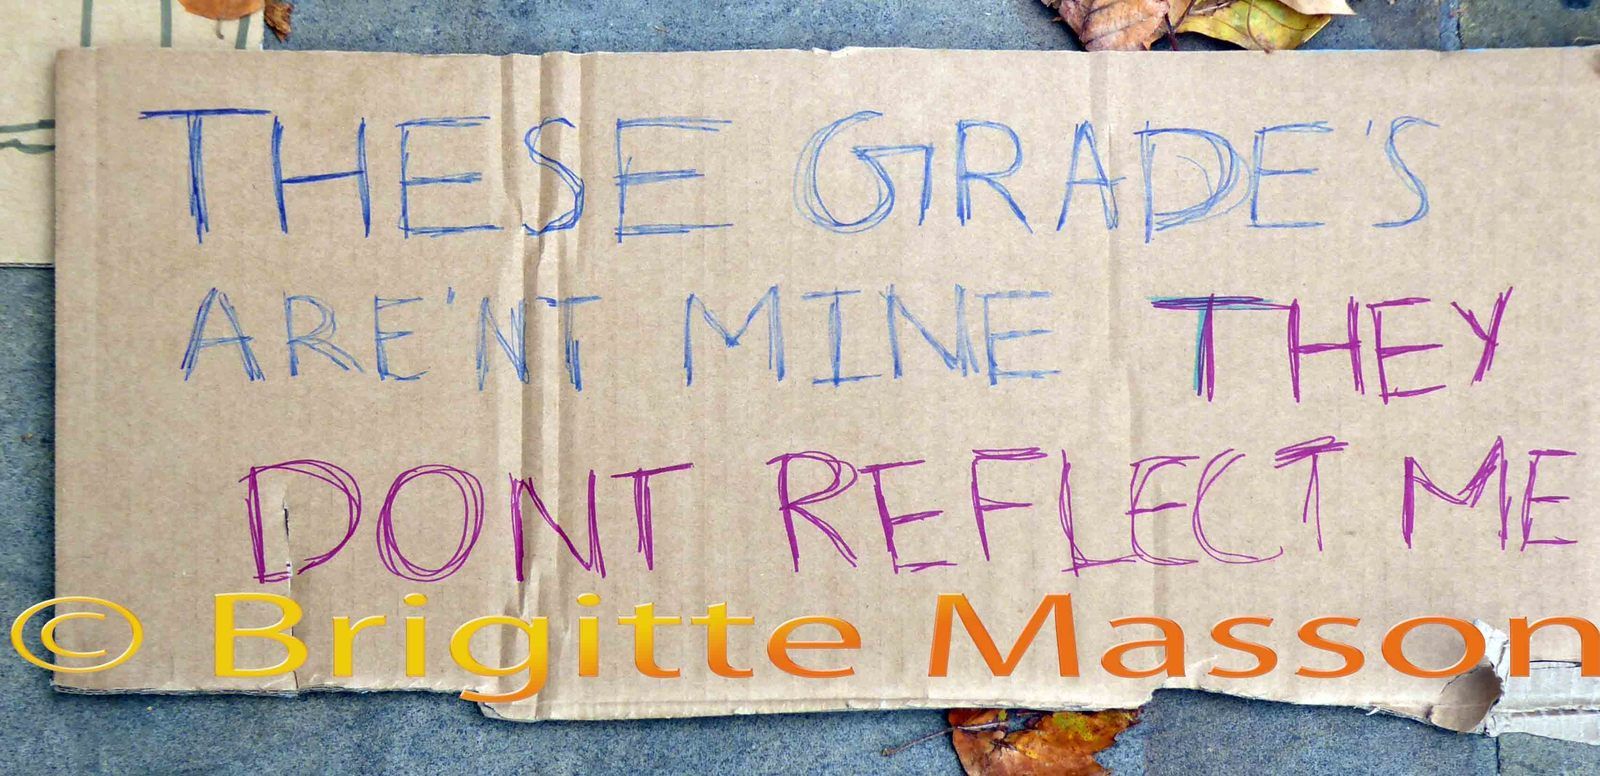 THESE GRADE'S
ARE'NT MINE THEY
DONT REFLECT ME
© Brigitte Masson